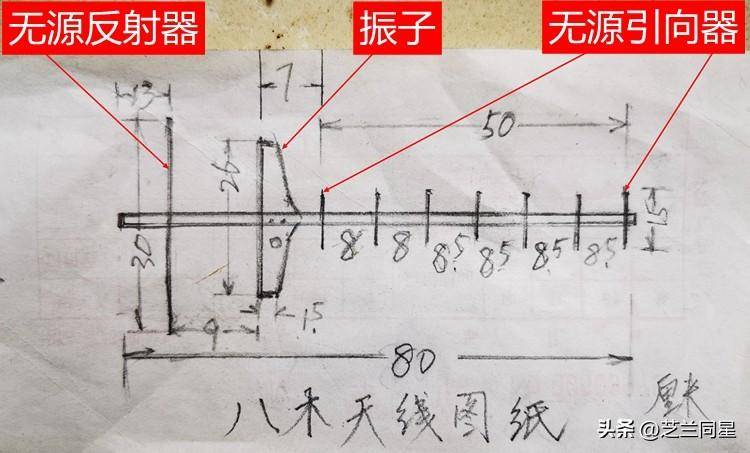 无源反射器 振子 无源引向器
13 7
50
30 26
15
8 8 8.5 8.5 8.5 8.5
9 1.5
80
八木天线图纸 厘米
头条 @芝兰同星